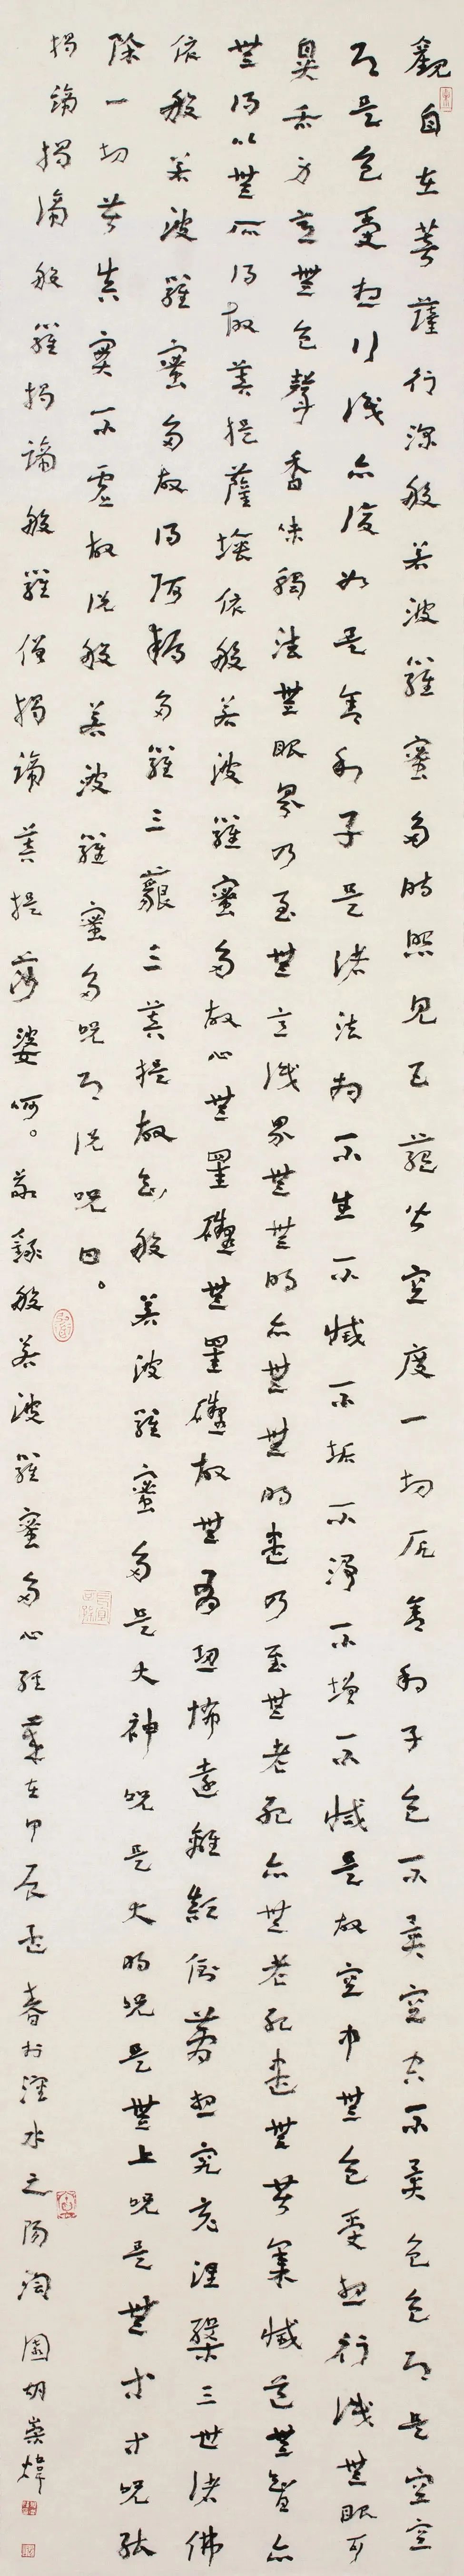 觀自在菩薩行深般若波羅蜜多時照見五蘊皆空度一切厄舍利子色不異空空不異色色即是空空
即是色受想行識亦復如是舍利子是諸法相不生不滅不垢不淨不增不減是故空中無色受想行識無眼耳
鼻舌身意無色聲香味觸法無眼界乃至無意識界無無明亦無無明盡乃至無老死亦無老死盡無苦集滅道無智亦
無得以無所得故菩提薩埵依般若波羅蜜多故心無罣礙無罣礙故無有恐怖遠離顛倒夢想究竟涅槃三世諸佛
依般若波羅蜜多故得阿耨多羅三藐三菩提故知般若波羅蜜多是大神呪是大明呪是無上呪是無等等呪能
除一切苦真實不虛故說般若波羅蜜多呪即說呪曰。
揭諦揭諦般羅揭諦般羅僧揭諦菩提莎婆呵。敬錄般若波羅蜜多心經歲在甲辰孟春於瀋水之陽陶園胡崇煒